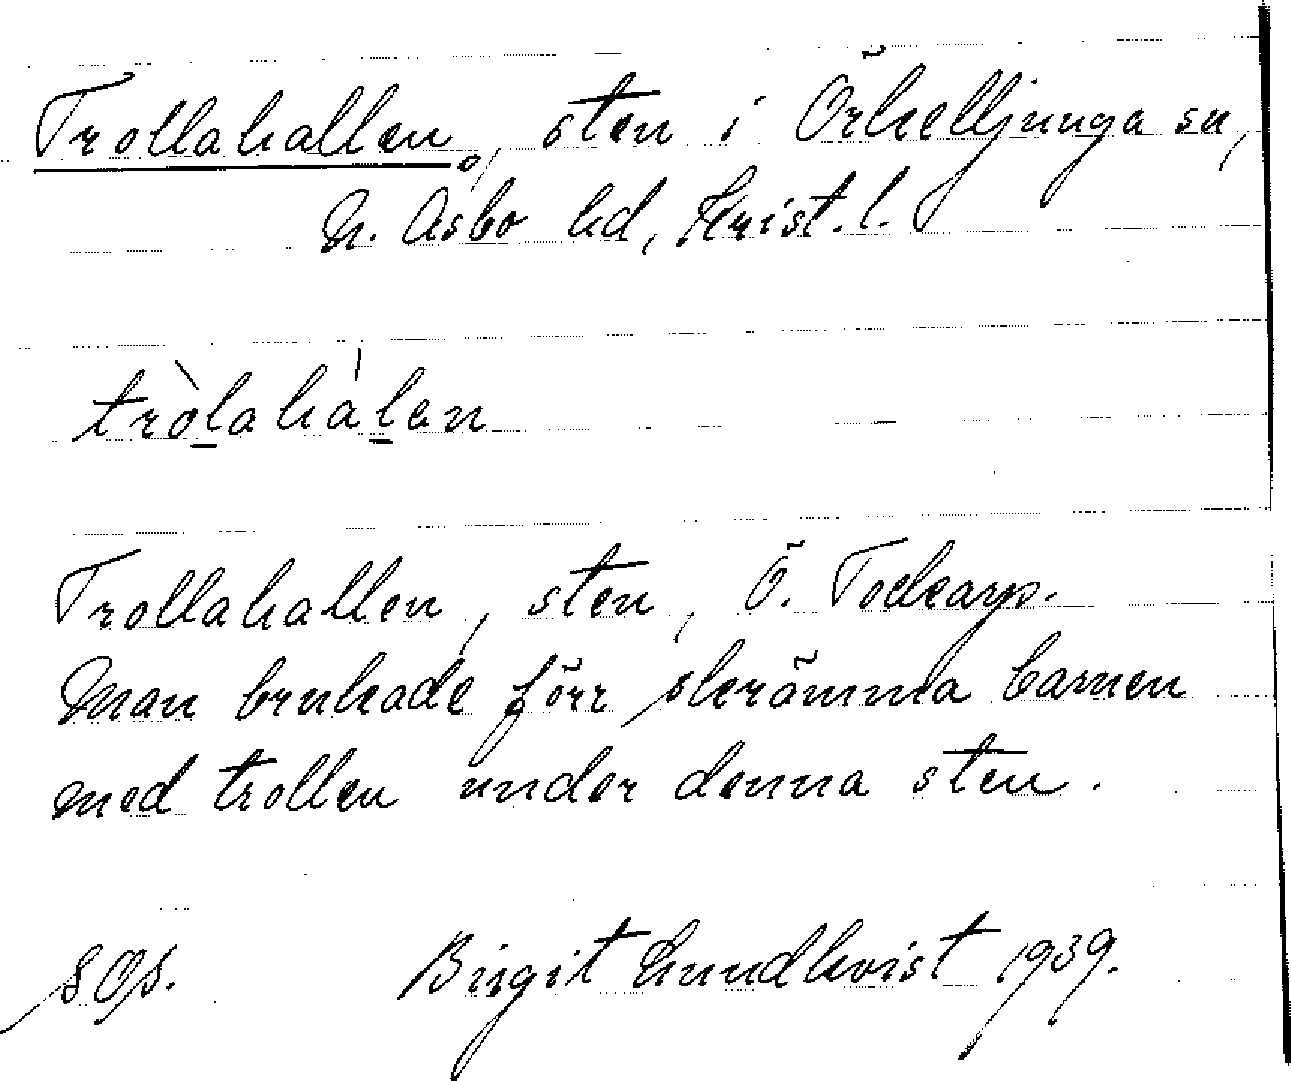 Trollahallen, sten i Örkelljunga sn,
N. Åsbo hd, Krist. l.
tròlahàlen
Trollahallen, sten, Ö. Tockarp.
Man brukade förr skrämma barnen
med trollen under denna sten.
Birgit Lundkvist 1939.